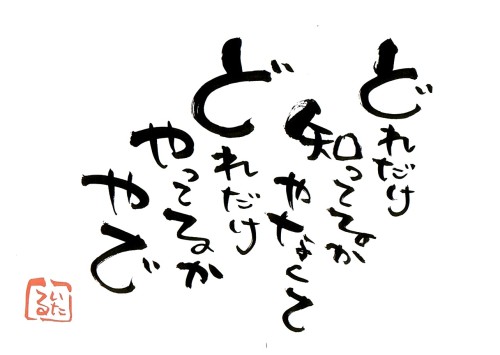 どれだけ
知ってるか
やなくて
どれだけ
やってるか
やで
いた
てる